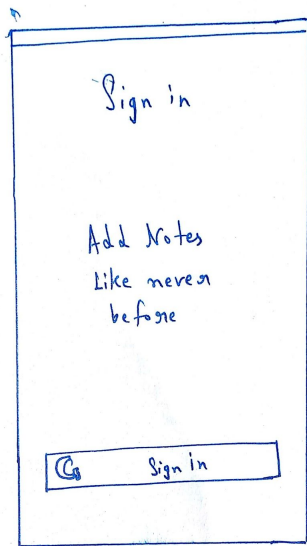 Sign in
Add Notes
Like never
before
G Sign in